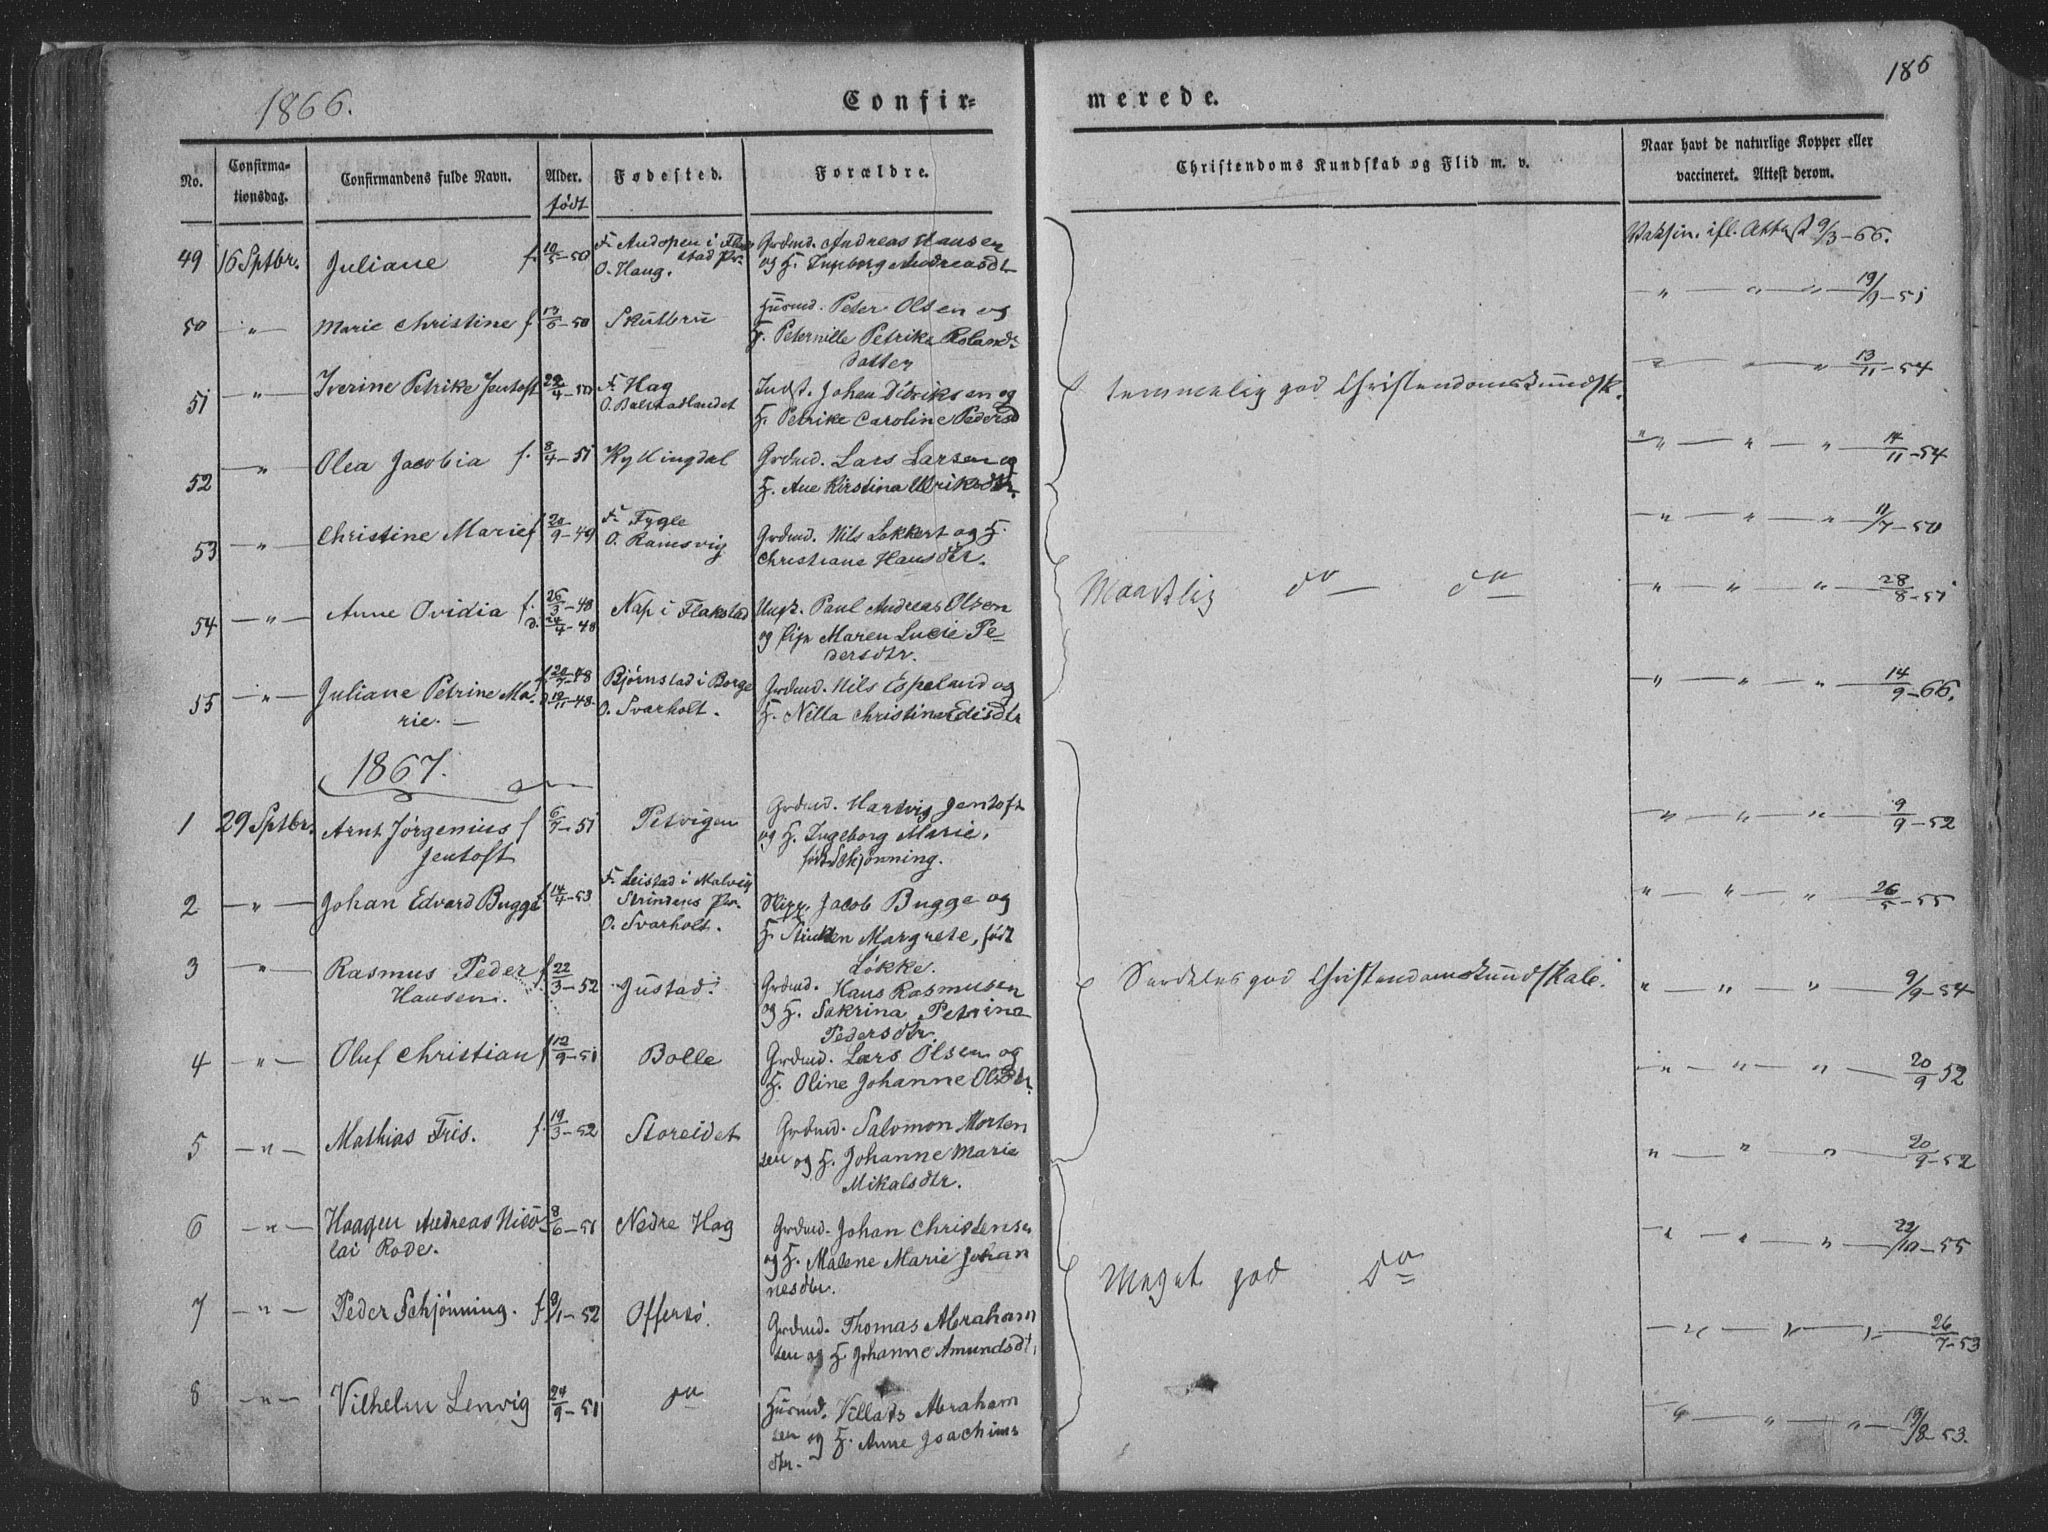 186
1866.
Confir=
merede.
No.
Confirma-
tionsdag.
Confirmandens fulde Navn.
Alder.
født
Fødested.
Forældre.
Christendoms Kundskab og Flid m. v.
Naar havt de naturlige Kopper eller
vaccineret. Attest derom.
49 16 Sptbr. Juliane f. 10/5-50
F. Andopen i Flak
stad Pr.
O. Haug.
Grdmd. Andreas Hansen
og H. Ingborg Andreasdtr
Vaksin. ifl. Attest 9/3-66.
50 -"- Marie Christine f 13/6-50 Skutbru
Husmd. Peter Olsen og
H. Peternille Petrike Rolands
datter
" " " 19/9-51
51 -"- Iverine Petrike Jentoft 22/4-50
F. Hag
O. Balstadlandet
Indst. Johan Didriksen og
H. Petrike Caroline Pedersd
temmelig god Christendomskundsk.
" " " 13/11-54
52 -"- Olea Jacobia f. 8/4-51 Kyllingdal
Grdmd. Lars Larsen og
H. Ane Kirstina Ulriksdtr.
" " " 14/11-54
53 -"- Christine Marie f 20/9-49
F. Fygle
O. Ramsvig
Grdmd. Nils Lokkert og H.
Christiane Hansdtr.
" " " 11/7-50
54 -"- Anne Ovidia f. 26/3-48
d. 24/4-48
Nap i Flakstad
Ungk. Paul Andreas Olsen
og Pige Maren Lucie Pe-
dersdtr.
Maadelig do do
" " " 28/8-51
55 -"- Juliane Petrine Ma-
rie.
f 20/9-48
d 19/11-48
Bjørnstad i Borge
O. Svarholt.
Grdmd. Nils Espeland og
H. Nella Christina Edisdtr
" " " 14/9-66.
1867.
1 29 Sptbr. Arnt Jørgenius f
Jentoft
6/7-51 Petvigen
Grdmd. Hartvig Jentoft
og H. Ingeborg Marie,
født Schjønning.
" " " 9/9-52
2 -"- Johan Edvard Bugge f 14/4-53
F. Leistad i Malvig
Strindens Pr.
O. Svarholt.
Skipp. Jacob Bugge og
H. Margrete, født
Løkke.
" " " 26/5-55
3 -"- Rasmus Peder f.
Hansen.
22/3-52 Gustad.
Grdmd. Hans Rasmusen
og H. Sakrina Petrine
Pedersdtr.
Serdeles god Christendomskundskab.
" " " 9/9-54
4 -"- Oluf Christian f 12/9-51 Bolle
Grdmd. Lars Olsen og
H. Oline Johanne Olsdtr
" " " 20/9 52
5 -"- Mathias Friis. f. 19/3-52 Storeidet
Grdmd. Salomon Morten
sen og H. Johanne Marie
Mikalsdtr.
" " " 20/9-52
6 -"- Haagen Andreas Nico-
lai Rode.
8/6-51 Nedre Hag
Grdmd. Johan Christensen
og H. Malene Marie Johan
nesdtr.
Meget god do
" " " 22/10-55
7 -"- Peder Schjønning. f. 8/1-52 Offersø.
Grdmd. Thomas Abraham
sen og H. Johanne Amundsdt.
" " " 26/7-53
8 -"- Vilhelm Lenvig 24/9-51 do
Husmd. Villads Abraham
sen og H. Anne Joachims
dtr.
" " " 19/8-53.